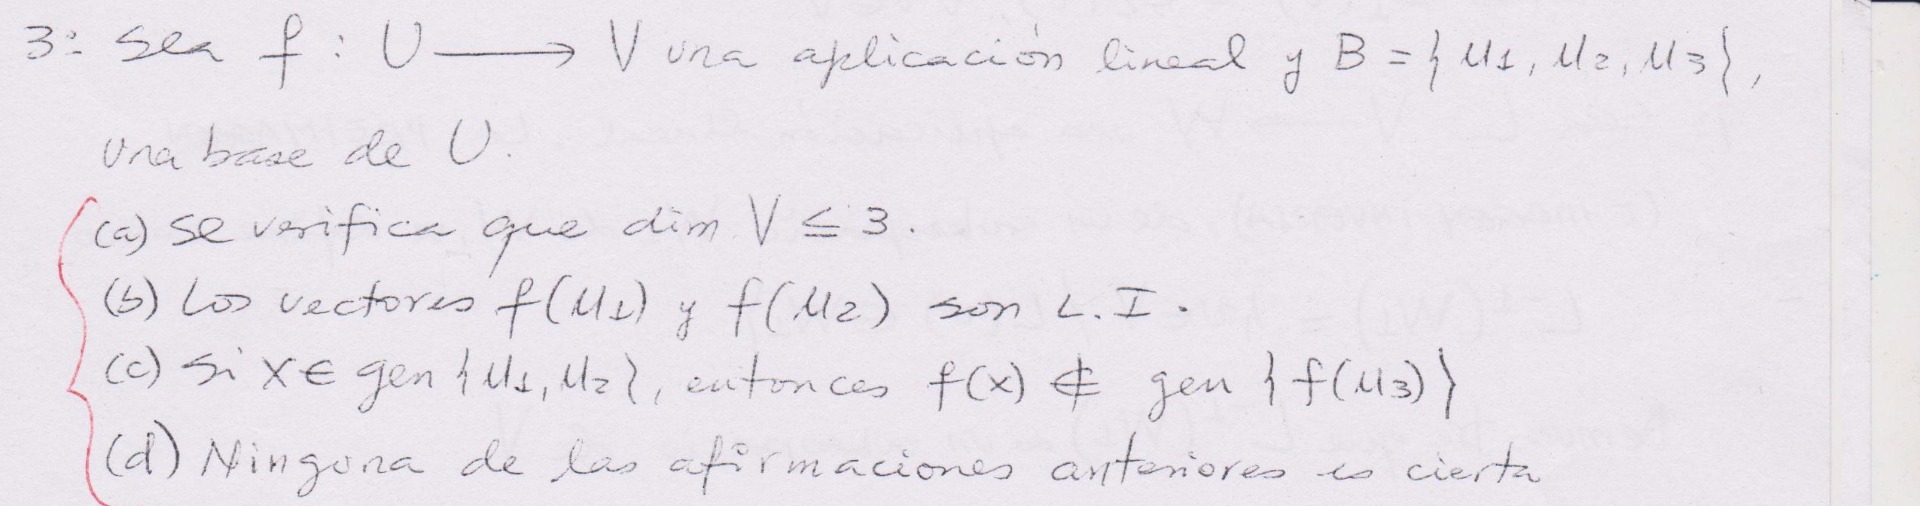 3º Sea f : U ⟶ V una aplicación lineal y B = { u1, u2, u3 },
una base de U.
(a) Se verifica que dim V ≤ 3.
(b) Los vectores f(u1) y f(u2) son L. I.
(c) Si x ∈ gen { u1, u2 }, entonces f(x) ∉ gen { f(u3) }
(d) Ninguna de las afirmaciones anteriores es cierta